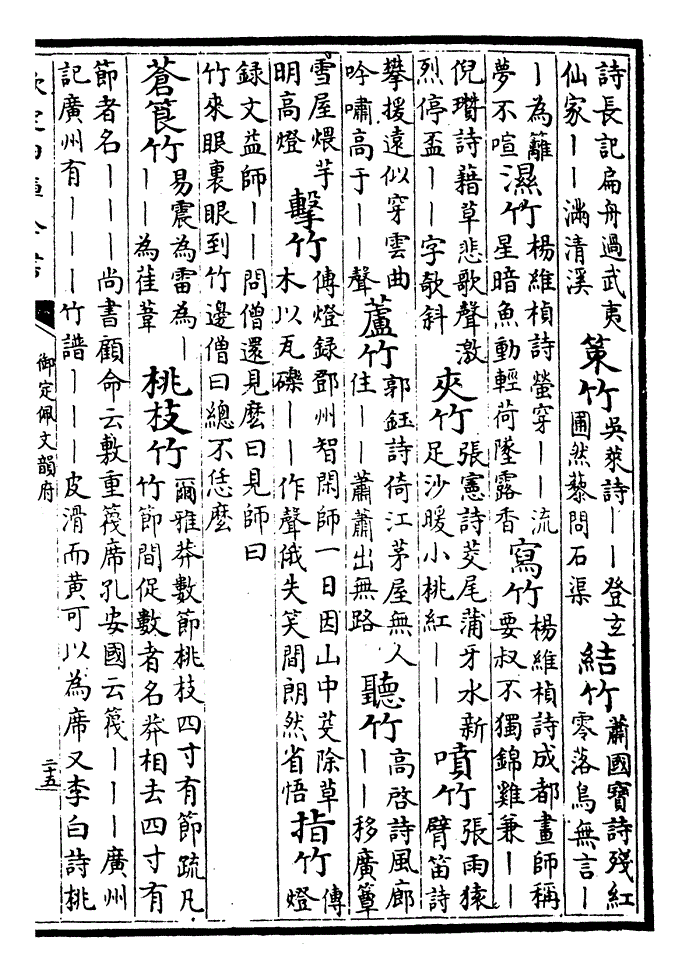 詩長記扁舟過武夷
仙家丨丨滿清溪
策竹
吳萊詩丨丨登玄
圃然藜問石渠
結竹
蕭國寶詩殘紅
零落鳥無言丨
丨為籬
夢不喧
濕竹
楊維楨詩螢穿丨丨流
星暗魚動輕荷墜露香
寫竹
楊維楨詩成都畫師稱
要叔不獨錦雞兼丨丨
倪瓚詩藉草悲歌聲激
烈停盃丨丨字欹斜
夾竹
張憲詩茭尾蒲牙水新
足沙暖小桃紅丨丨
噴竹
張雨猿
臂笛詩
攀援遠似穿雲曲
吟嘯高于丨丨聲
蘆竹
郭鈺詩倚江茅屋無人
住丨丨蕭蕭出無路
聽竹
高啓詩風廊
丨丨移廣簟
雪屋煨芋
明高燈
擊竹
傳燈錄鄧州智閑師一日因山中芟除草
木以瓦礫丨丨作聲俄失笑間朗然省悟
指竹
傳
燈
録文益師丨丨問僧還見麽曰見師曰
竹來眼裏眼到竹邊僧曰總不恁麽
蒼筤竹
易震為雷為丨
丨丨為萑葦
桃枝竹
爾雅莽數節桃枝四寸有節疏凡
竹節間促數者名莽相去四寸有
節者名丨丨丨尚書顧命云敷重篾席孔安國云篾丨丨丨廣州
記廣州有丨丨丨竹譜丨丨丨皮滑而黃可以為席又李白詩桃
御定佩文韻府
二十五